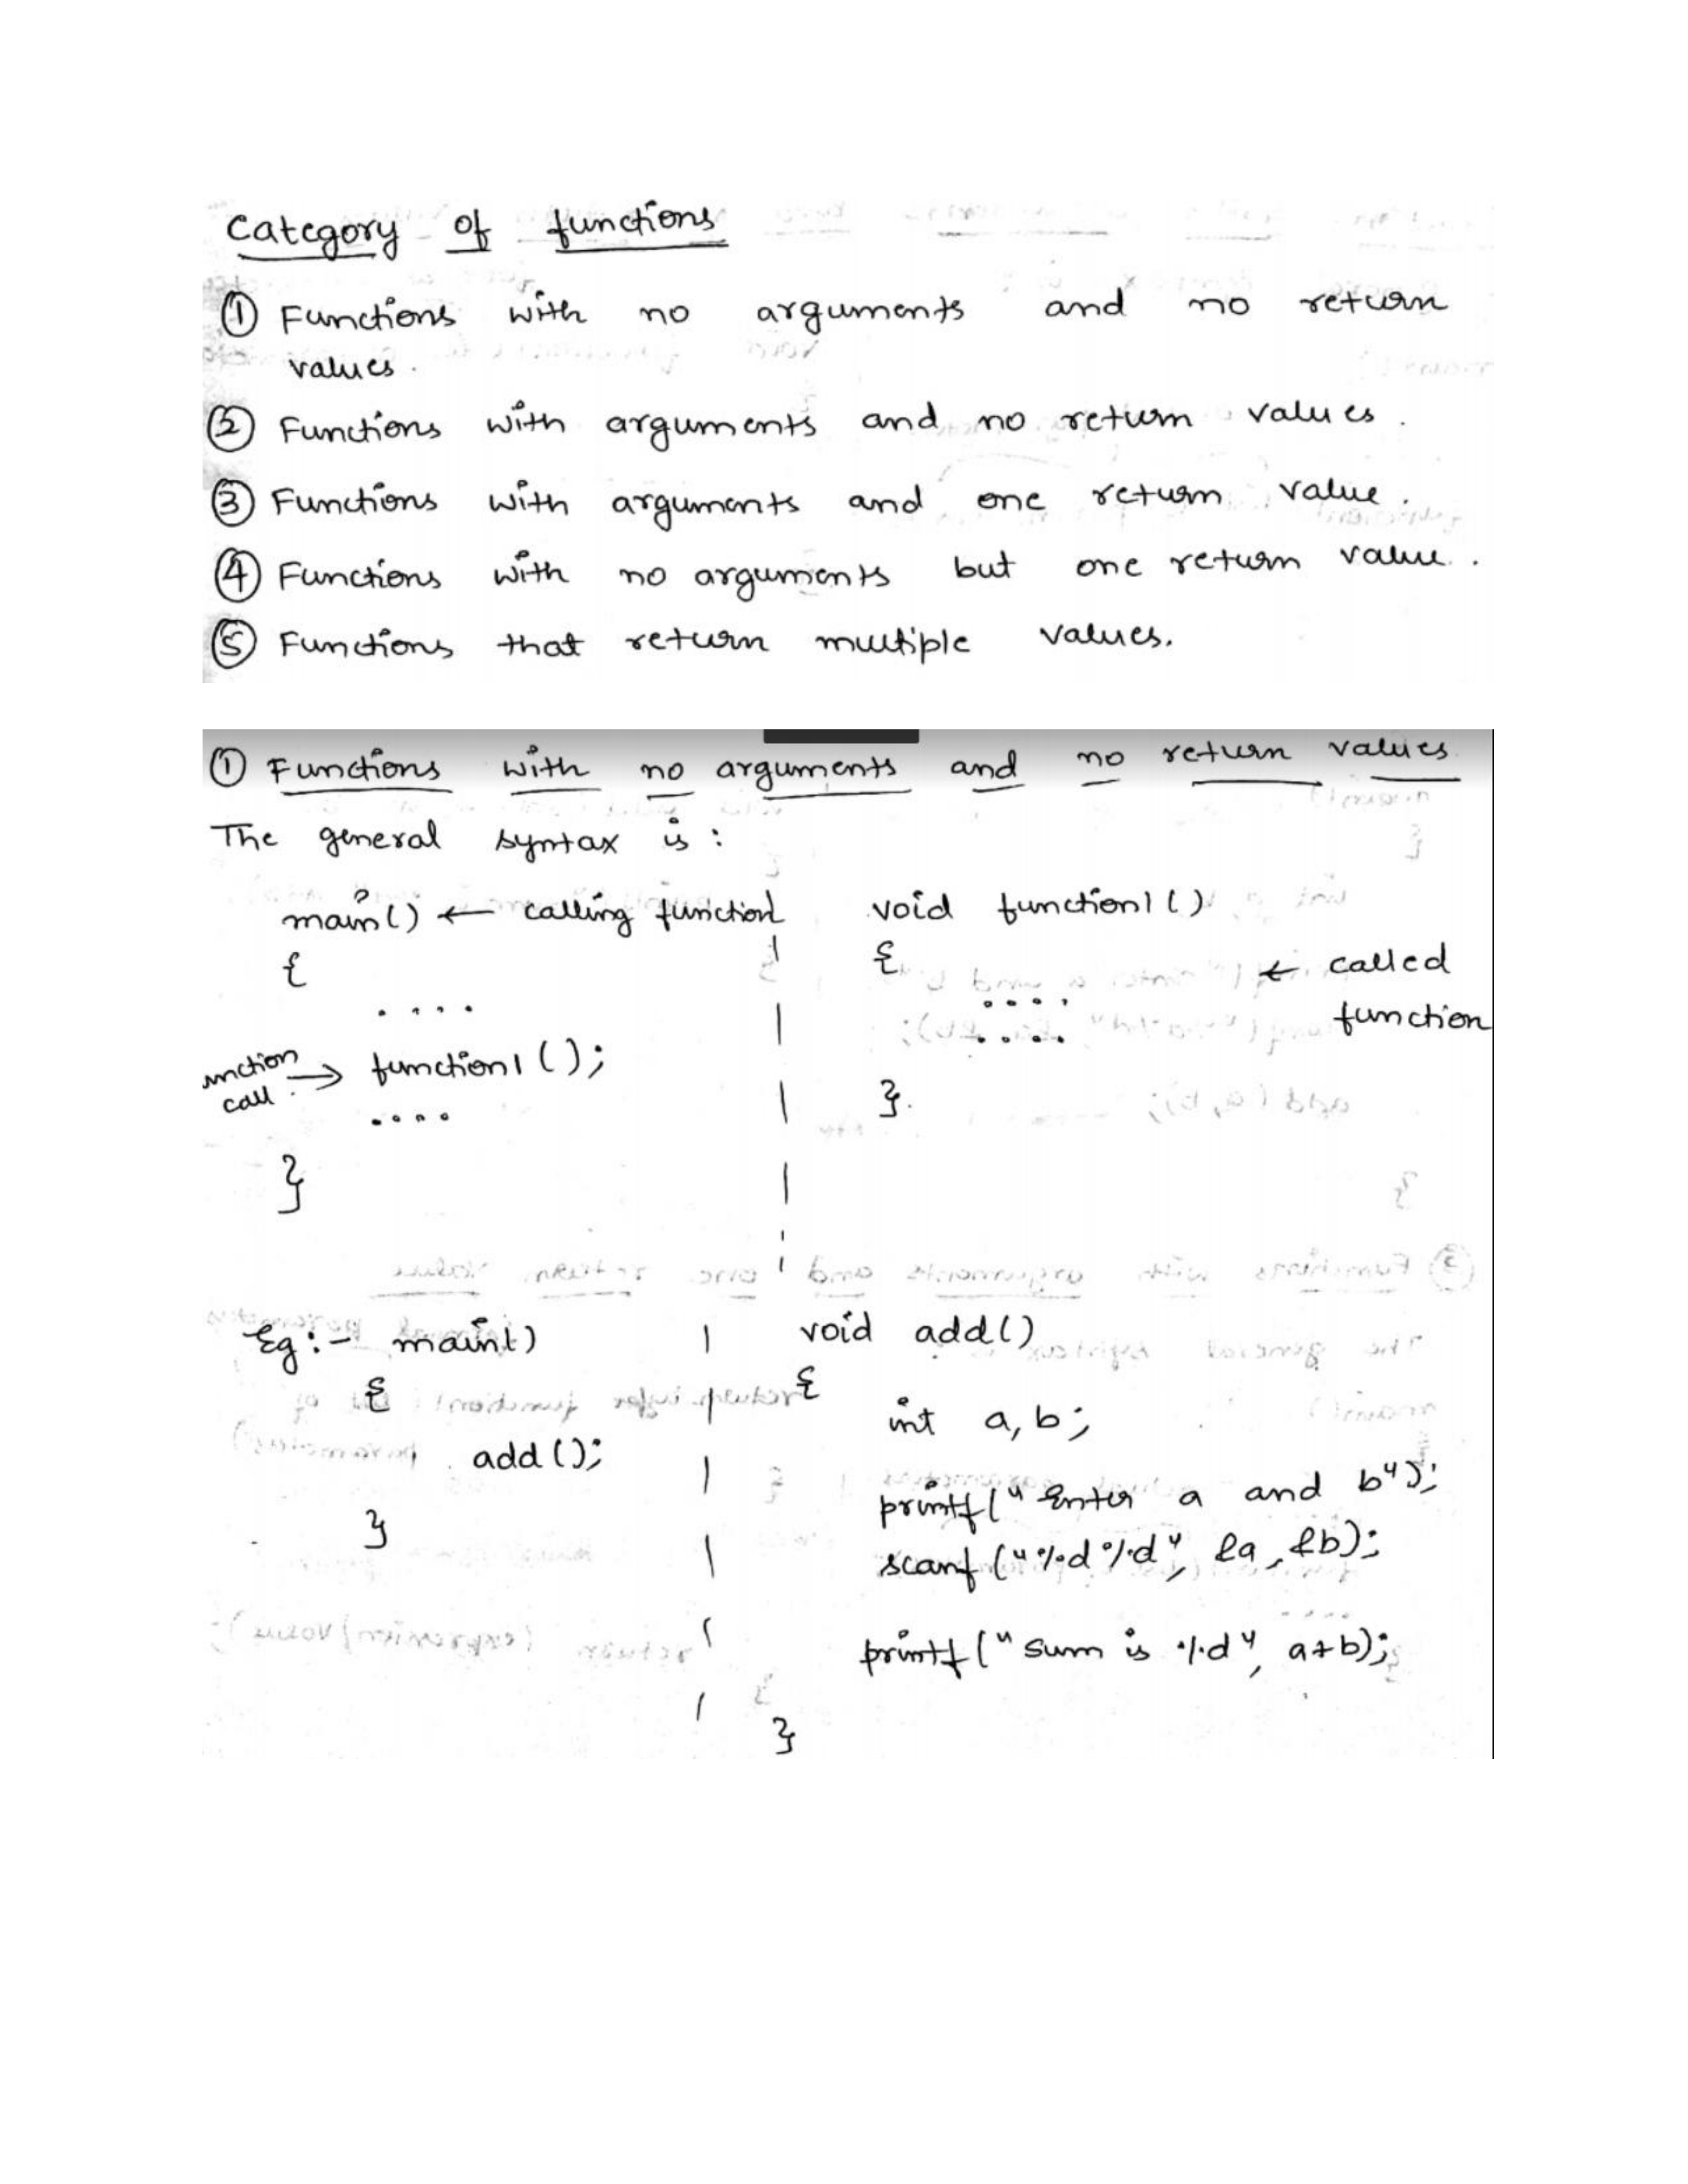 Category of functions
① Functions with no arguments and no return
values.
② Functions with arguments and no return values.
③ Functions with arguments and one return value.
④ Functions with no arguments but one return value.
⑤ Functions that return multiple values.
① Functions with no arguments and no return values
The general syntax is :
main() ← calling function
{
....
unction call → function1 ();
....
}
void function1 ()
{
← called function
....
....
}.
Eg:- main()
{
add();
}
void add()
{
int a, b;
printf("Enter a and b");
scanf("%d%d", &a, &b);
printf("Sum is %d", a+b);
}